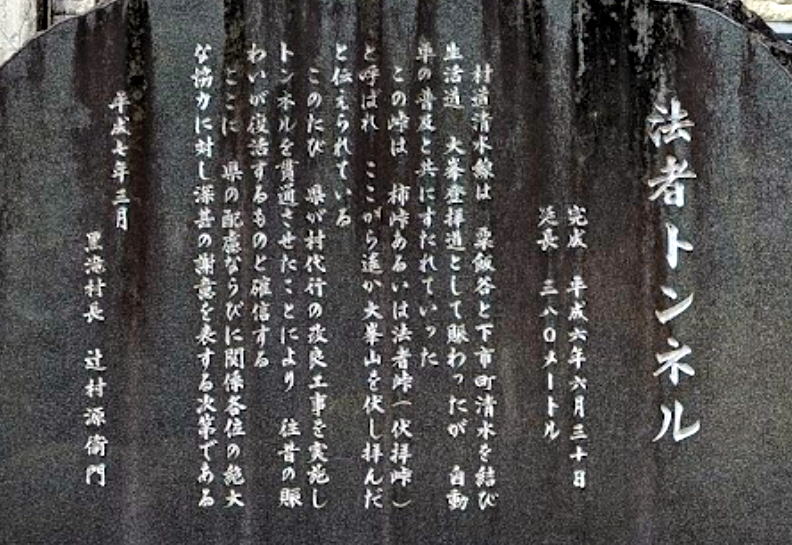 法者トンネル
完成 平成六年六月三十日
延長 三八〇メートル
村道清水線は 粟飯谷と下市町清水を結び
生活道 大峯登拝道として賑わったが 自動
車の普及と共にすたれていった
この峠は 柿峠あるいは法者峠(伏拝峠)
と呼ばれ ここから遥か大峯山を伏し拝んだ
と伝えられている
このたび 県が村代行の改良工事を実施し
トンネルを貫通させたことにより 往昔の賑
わいが復活するものと確信する
ここに 県の配慮ならびに関係各位の絶大
な協力に対し深甚の謝意を表する次第である
平成七年三月
黒滝村長 辻村源衛門